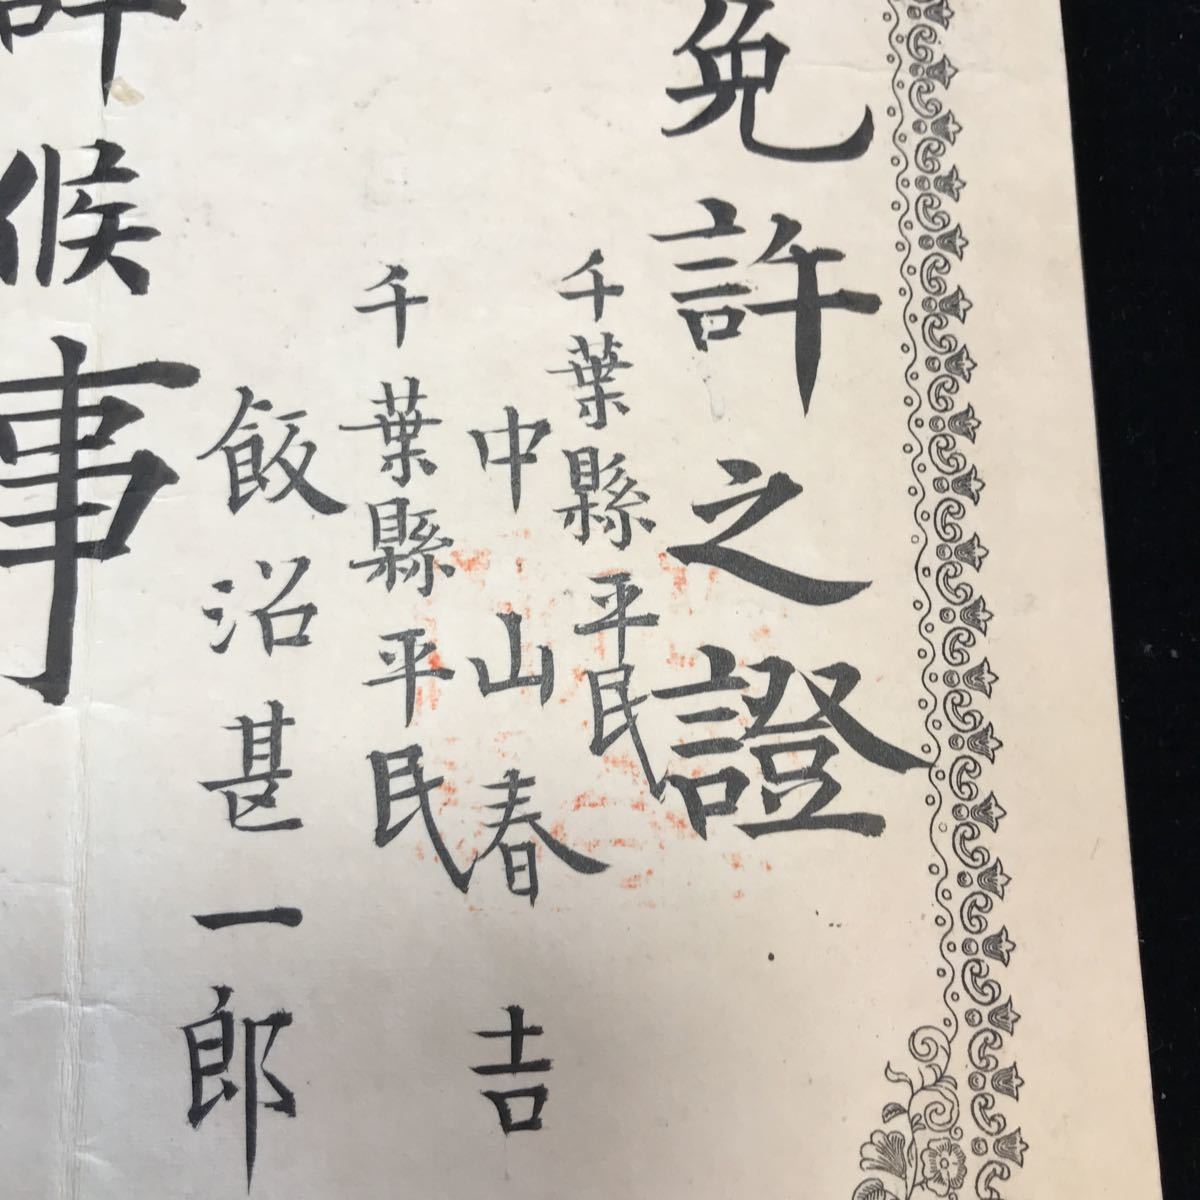 免許之證
千葉縣平民
中山春吉
千葉縣平民
飯沼甚一郎
許候事